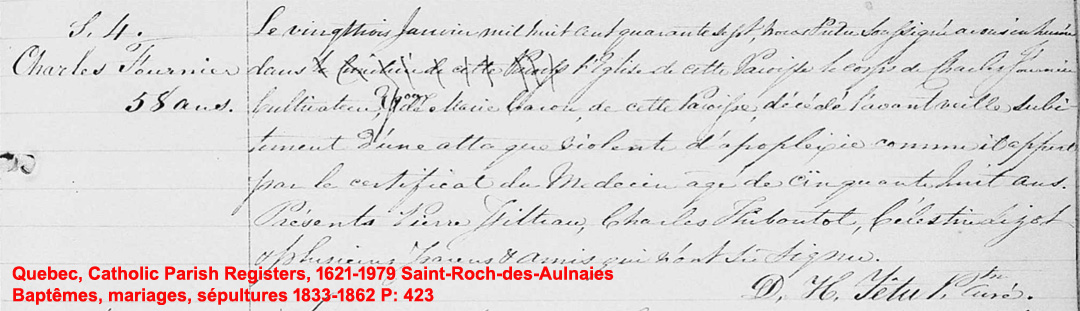 S. 4.
Charles Fournier
58 ans.
Le vingt trois Janvier mil huit cent quarante sept, nous Prêtre Soussigné avons inhumé
dans le cimitière de cette Paroisse l'Eglise de cette Paroisse le corps de Charles Fournier
Cultivateur, Epoux de Marie Caron, de cette Paroisse, décédé l'avant veille subi-
tement d'une attaque violente d'apoplexie comme il appert
par le certificat du Medecin agé de cinquante huit ans.
Présents Pierre Charles Thiboutot, Célestin
& plusieurs Parens & amis qui n'ont su signer.
D. H. Têtu Ptre Curé.
Quebec, Catholic Parish Registers, 1621-1979 Saint-Roch-des-Aulnaies
Baptêmes, mariages, sépultures 1833-1862 P: 423